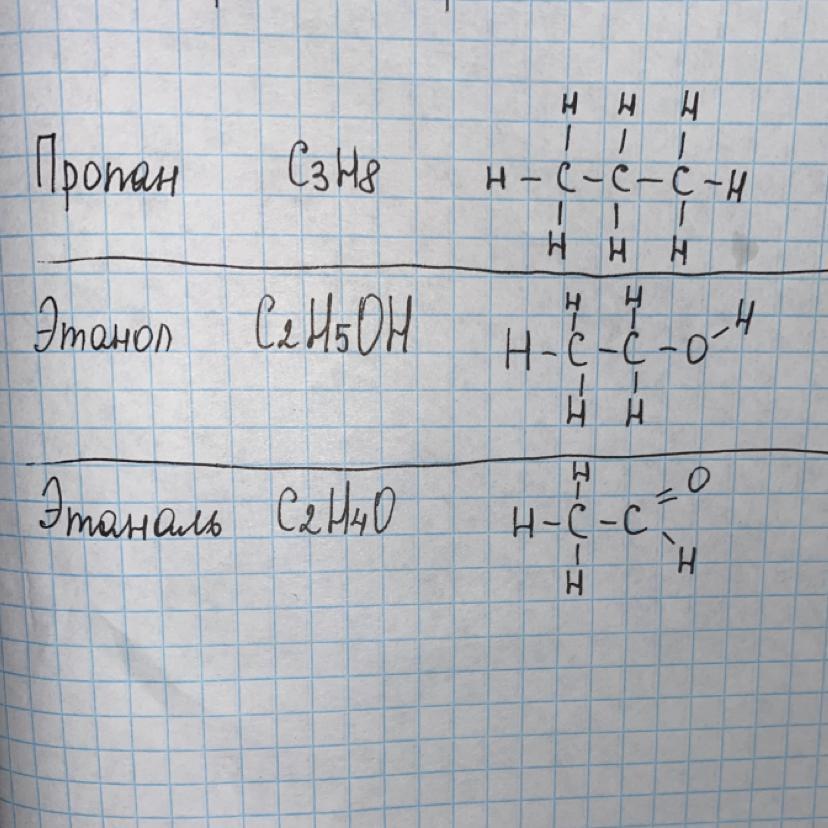 H H H
Пропан C3H8 H-C-C-C-H
H H H
H H
Этанол C2H5OH H-C-C-O-H
H H
H
Этаналь C2H4O H-C-C=O
H H